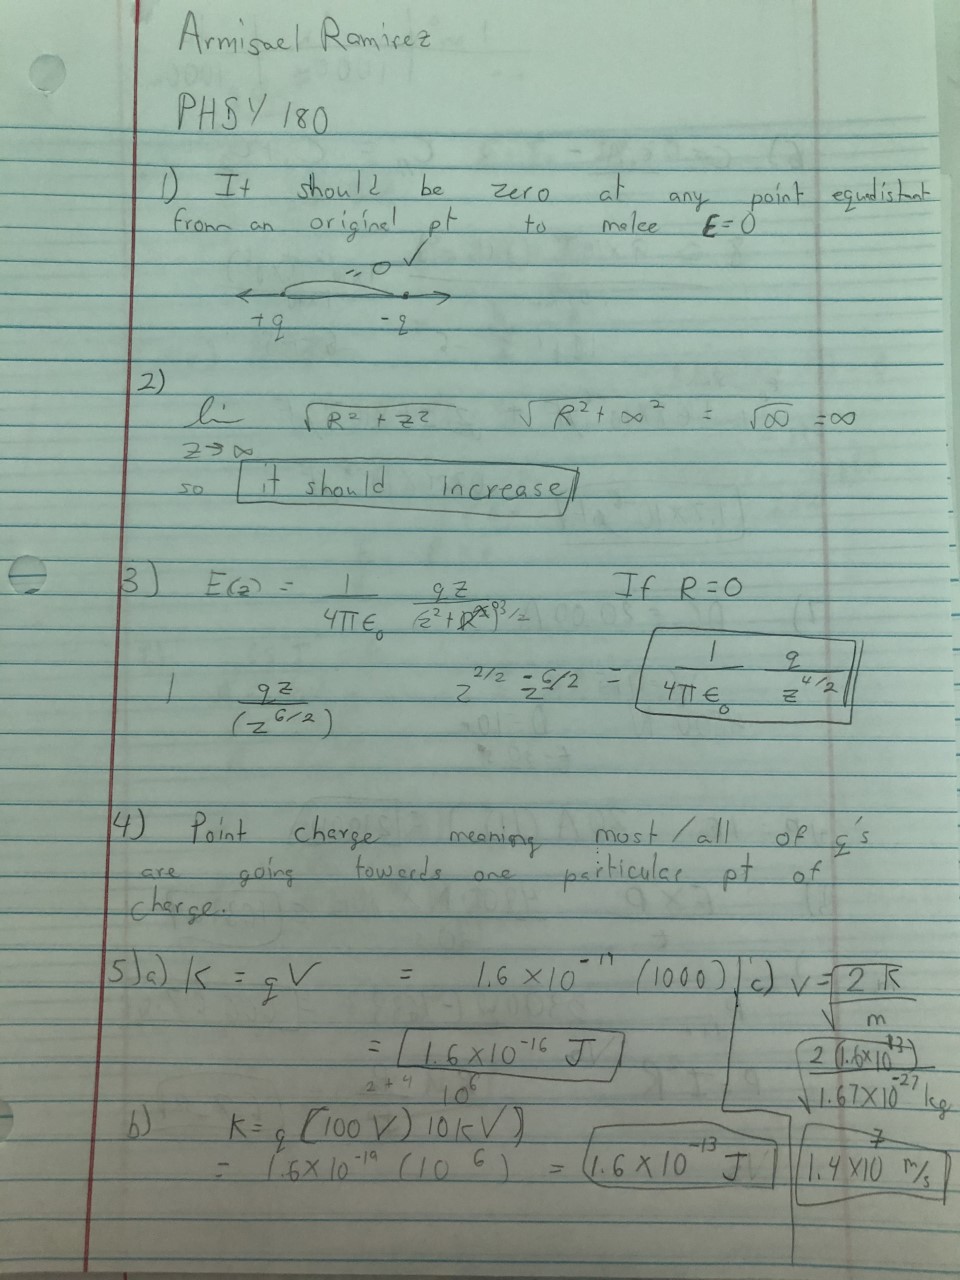 Armisael Ramirez
PHSY 180
1) It should be zero at any point equdistant
from an original pt to make E=0
= 0 ✓
+q -q
2)
lim z→∞ √R² + z² √R² + ∞² = √∞ = ∞
so it should increase
3) E(z) = 1/4πε₀ qz/(z²+R²)^3/2 If R=0
1 qz/(z^6/2) z^2/2 - z^6/2 = 1/4πε₀ q/z^4/2
4) Point charge meaning most/all of q's
are going towards one particular pt of
charge.
5)a) K = qV = 1.6 × 10⁻¹⁹ (1000)
= 1.6×10⁻¹⁶ J
2+4 10⁶
b) K= q (100 V) 10kV)
= 1.6×10⁻¹⁹ (10⁶) = 1.6 × 10⁻¹³ J
c) v = √2K/m
√2(1.6×10⁻¹³)/1.67×10⁻²⁷ kg
1.4×10⁷ m/s